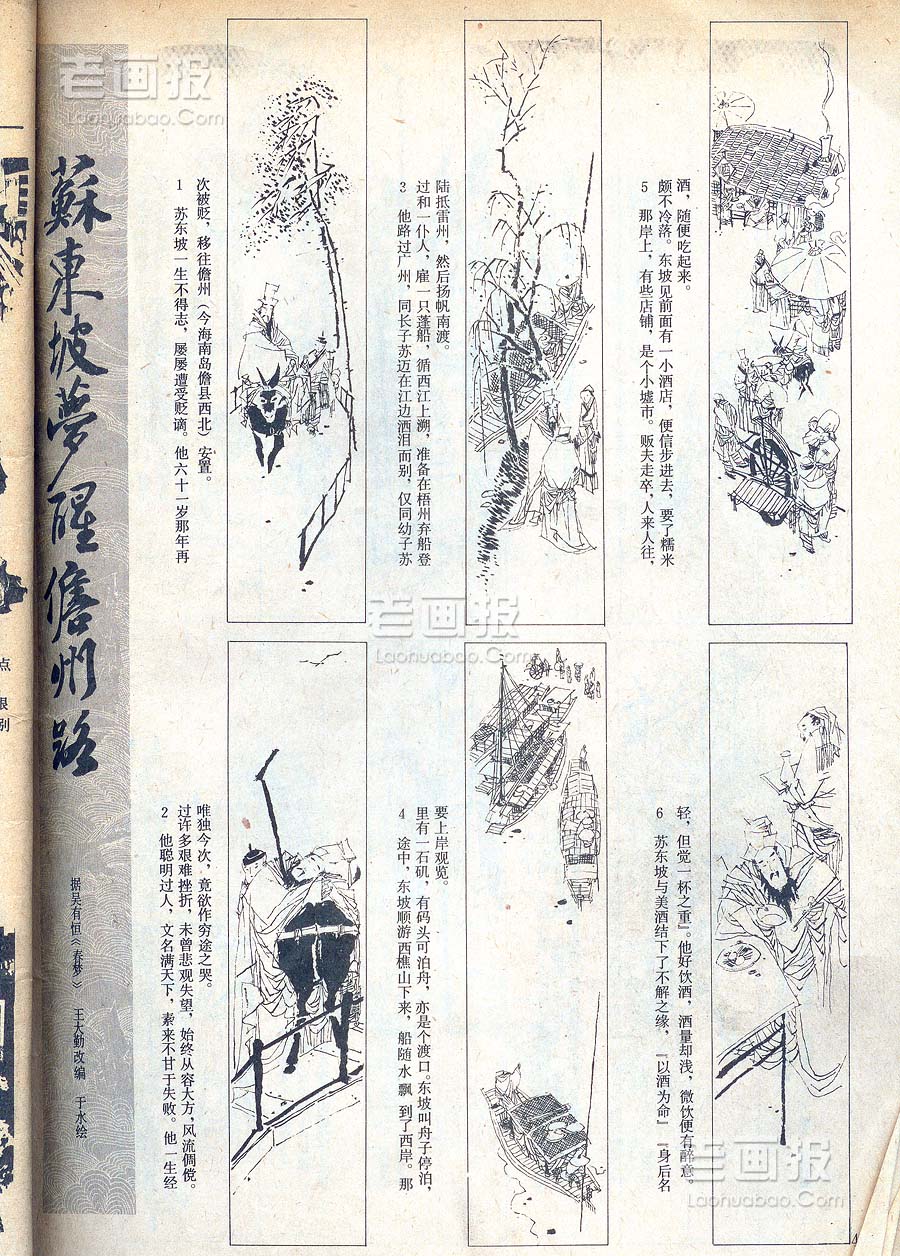 蘇東坡夢醒儋州路
据吴有恒《春梦》 王大勤改编 于水绘
1 苏东坡一生不得志，屡屡遭受贬谪。他六十一岁那年再
次被贬，移往儋州（今海南岛儋县西北）安置。
2 他聪明过人，文名满天下，素来不甘于失败。他一生经
过许多艰难挫折，未曾悲观失望，始终从容大方，风流倜傥。
唯独今次，竟欲作穷途之哭。
3 他路过广州，同长子苏迈在江边洒泪而别，仅同幼子苏
过和一仆人，雇一只蓬船，循西江上溯，准备在梧州弃船登
陆抵雷州，然后扬帆南渡。
4 途中，东坡顺游西樵山下来，船随水飘到了西岸。那
里有一石矶，有码头可泊舟，亦是个渡口。东坡叫舟子停泊，
要上岸观览。
5 那岸上，有些店铺，是个小墟市。贩夫走卒，人来人往，
颇不冷落。东坡见前面有一小酒店，便信步进去，要了糯米
酒，随便吃起来。
6 苏东坡与美酒结下了不解之缘，『以酒为命』『身后名
轻，但觉一杯之重』。他好饮酒，酒量却浅，微饮便有醉意。
老画报
Laohuabao.Com
老画报
Laonuabao.Com
老画报
Laonuabao.Com
点
别
4